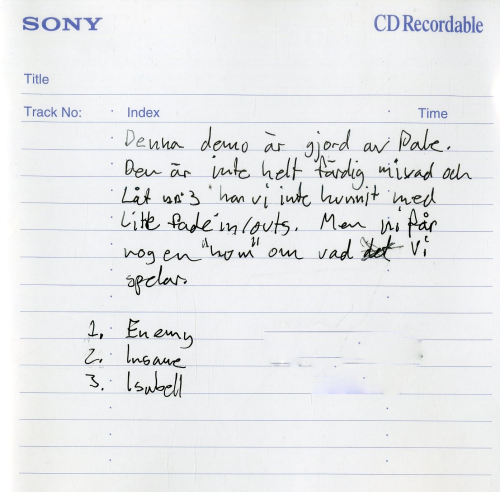 SONY CD Recordable
Title
Track No: Index Time
Denna demo är gjord av Pale.
Den är inte helt färdig mixad och
Låt nr: 3 har vi inte hunnit med
Lite fade in/outs. Men ni får
nog en "hum" om vad vi
spelar.
1. Enemy
2. Insane
3. Isabell